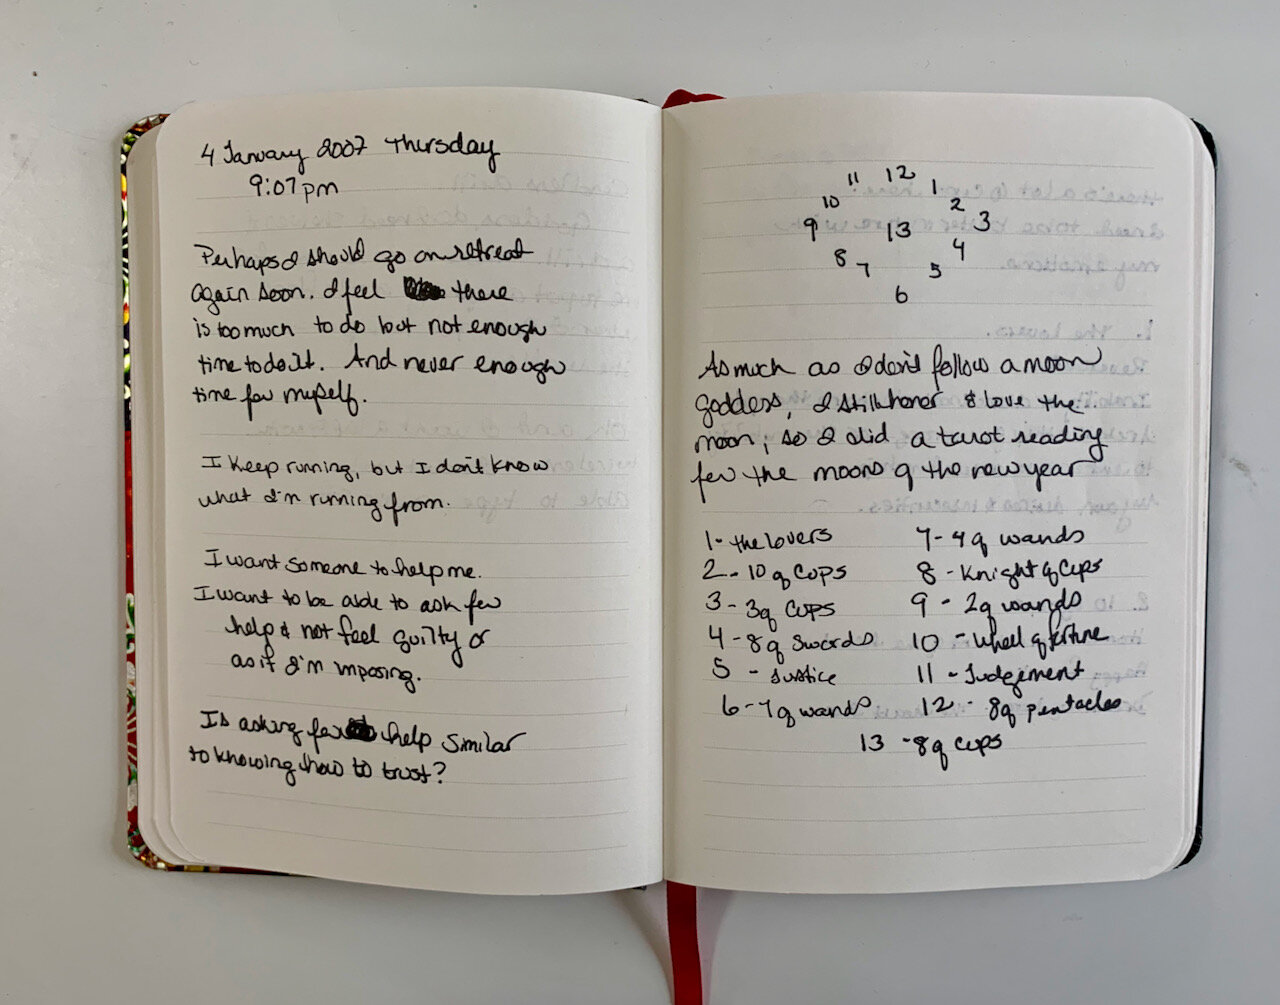 4 January 2007 Thursday
9:07pm
Perhaps I should go on retreat
again soon. I feel there
is too much to do but not enough
time to do it. And never enough
time for myself.
I keep running, but I don't know
what I'm running from.
I want someone to help me.
I want to be able to ask for
help & not feel guilty or
as if I'm imposing.
Is asking for help similar
to knowing how to trust?
12
11 1
10 2
9 13 3
8 4
7 5
6
As much as I don't follow a moon
goddess, I still honor & love the
moon, so I did a tarot reading
for the moons of the new year
1- the lovers 7- 4 of wands
2- 10 of cups 8 - Knight of Cups
3 - 3 of cups 9 - 2 of wands
4 - 8 of swords 10 - wheel of fortune
5 - Justice 11 - Judgement
6 - 7 of wands 12 - 8 of pentacles
13 - 8 of cups